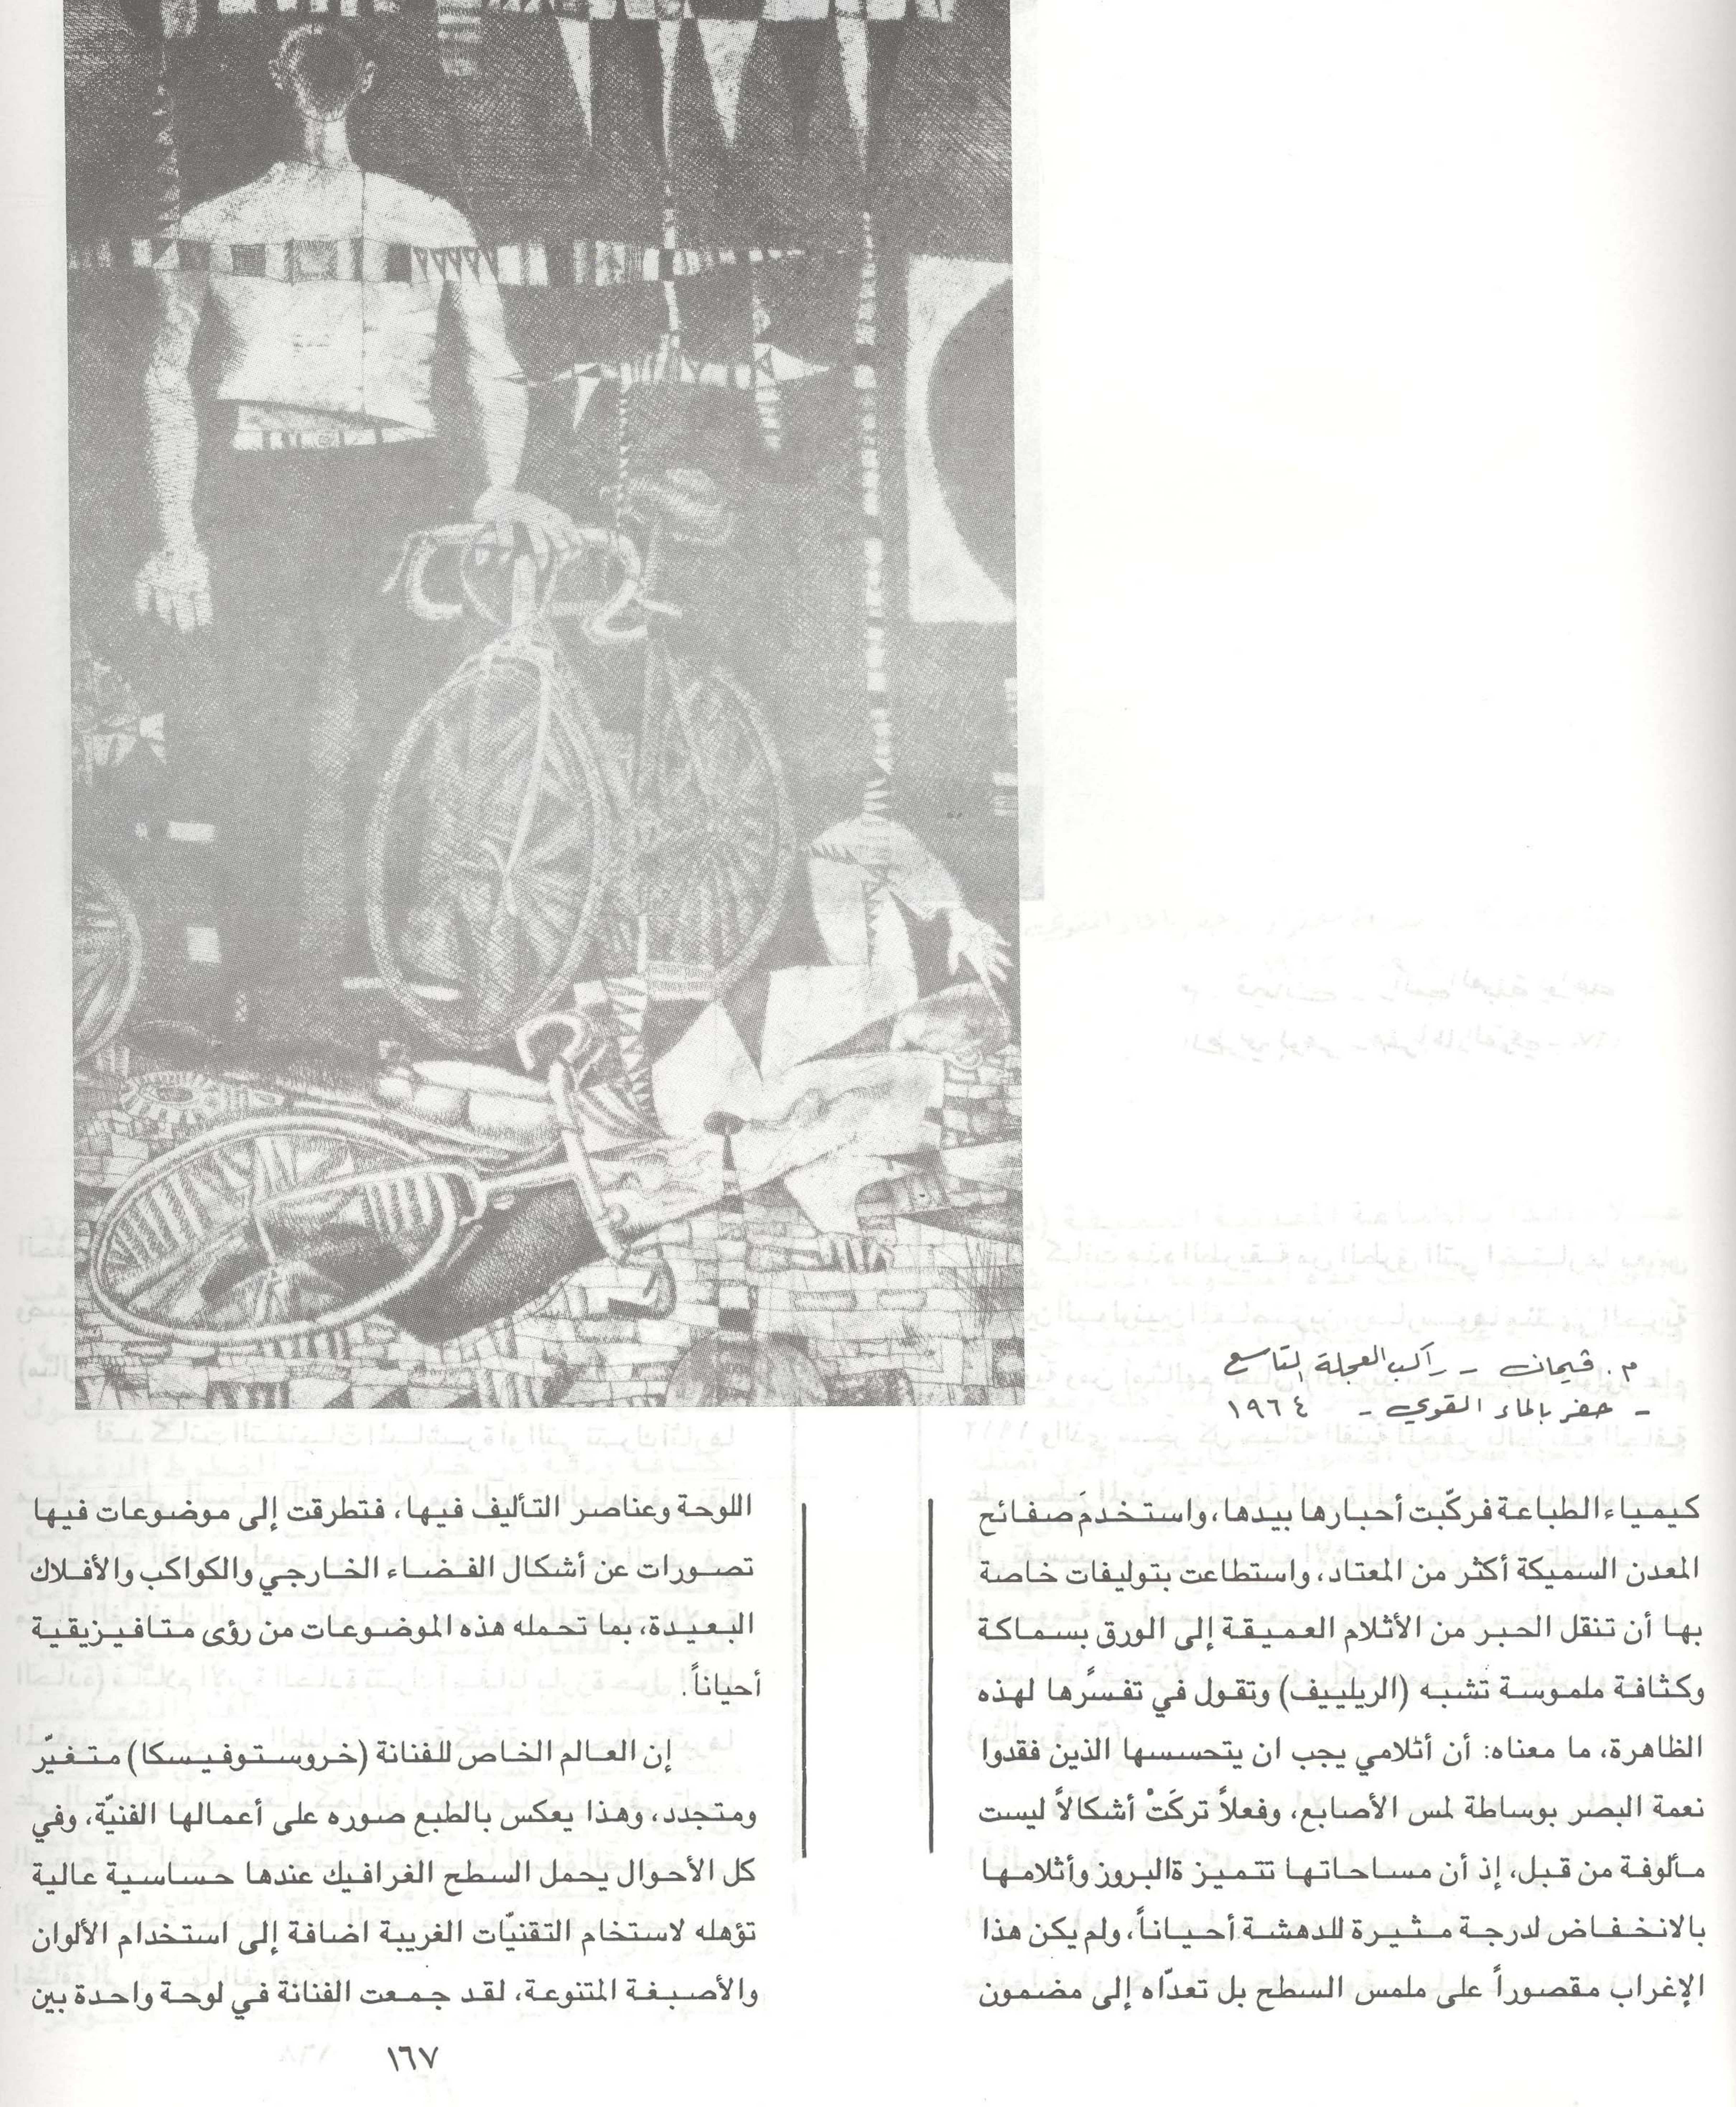 م. ڤيمان - راكب العجلة التاسع
- حفر بالماء القوي - ١٩٦٤
كيمياء الطباعة فركّبت أحبارها بيدها، واستخدمَ صفائح
المعدن السميكة أكثر من المعتاد، واستطاعت بتوليفات خاصة
بها أن تنقل الحبر من الأثلام العميقة إلى الورق بسماكة
وكثافة ملموسة تشبه (الريلييف) وتقول في تفسرًها لهذه
الظاهرة، ما معناه: أن أثلامي يجب ان يتحسسها الذين فقدوا
نعمة البصر بوساطة لمس الأصابع، وفعلاً تركَتْ أشكالاً ليست
مألوفة من قبل، إذ أن مساحاتها تتميز ةالبروز وأثلامها
بالانخفاض لدرجة مثيرة للدهشة أحياناً، ولم يكن هذا
الإغراب مقصوراً على ملمس السطح بل تعدّاه إلى مضمون
اللوحة وعناصر التأليف فيها، فتطرقت إلى موضوعات فيها
تصورات عن أشكال الفضاء الخارجي والكواكب والأفلاك
البعيدة، بما تحمله هذه الموضوعات من رؤى متافيزيقية
أحياناً.
إن العالم الخاص للفنانة (خروستوفيسكا) متغيّر
ومتجدد، وهذا يعكس بالطبع صوره على أعمالها الفنيّة، وفي
كل الأحوال يحمل السطح الغرافيك عندها حساسية عالية
تؤهله لاستخام التقنيّات الغريبة اضافة إلى استخدام الألوان
والأصبغة المتنوعة، لقد جمعت الفنانة في لوحة واحدة بين
١٦٧